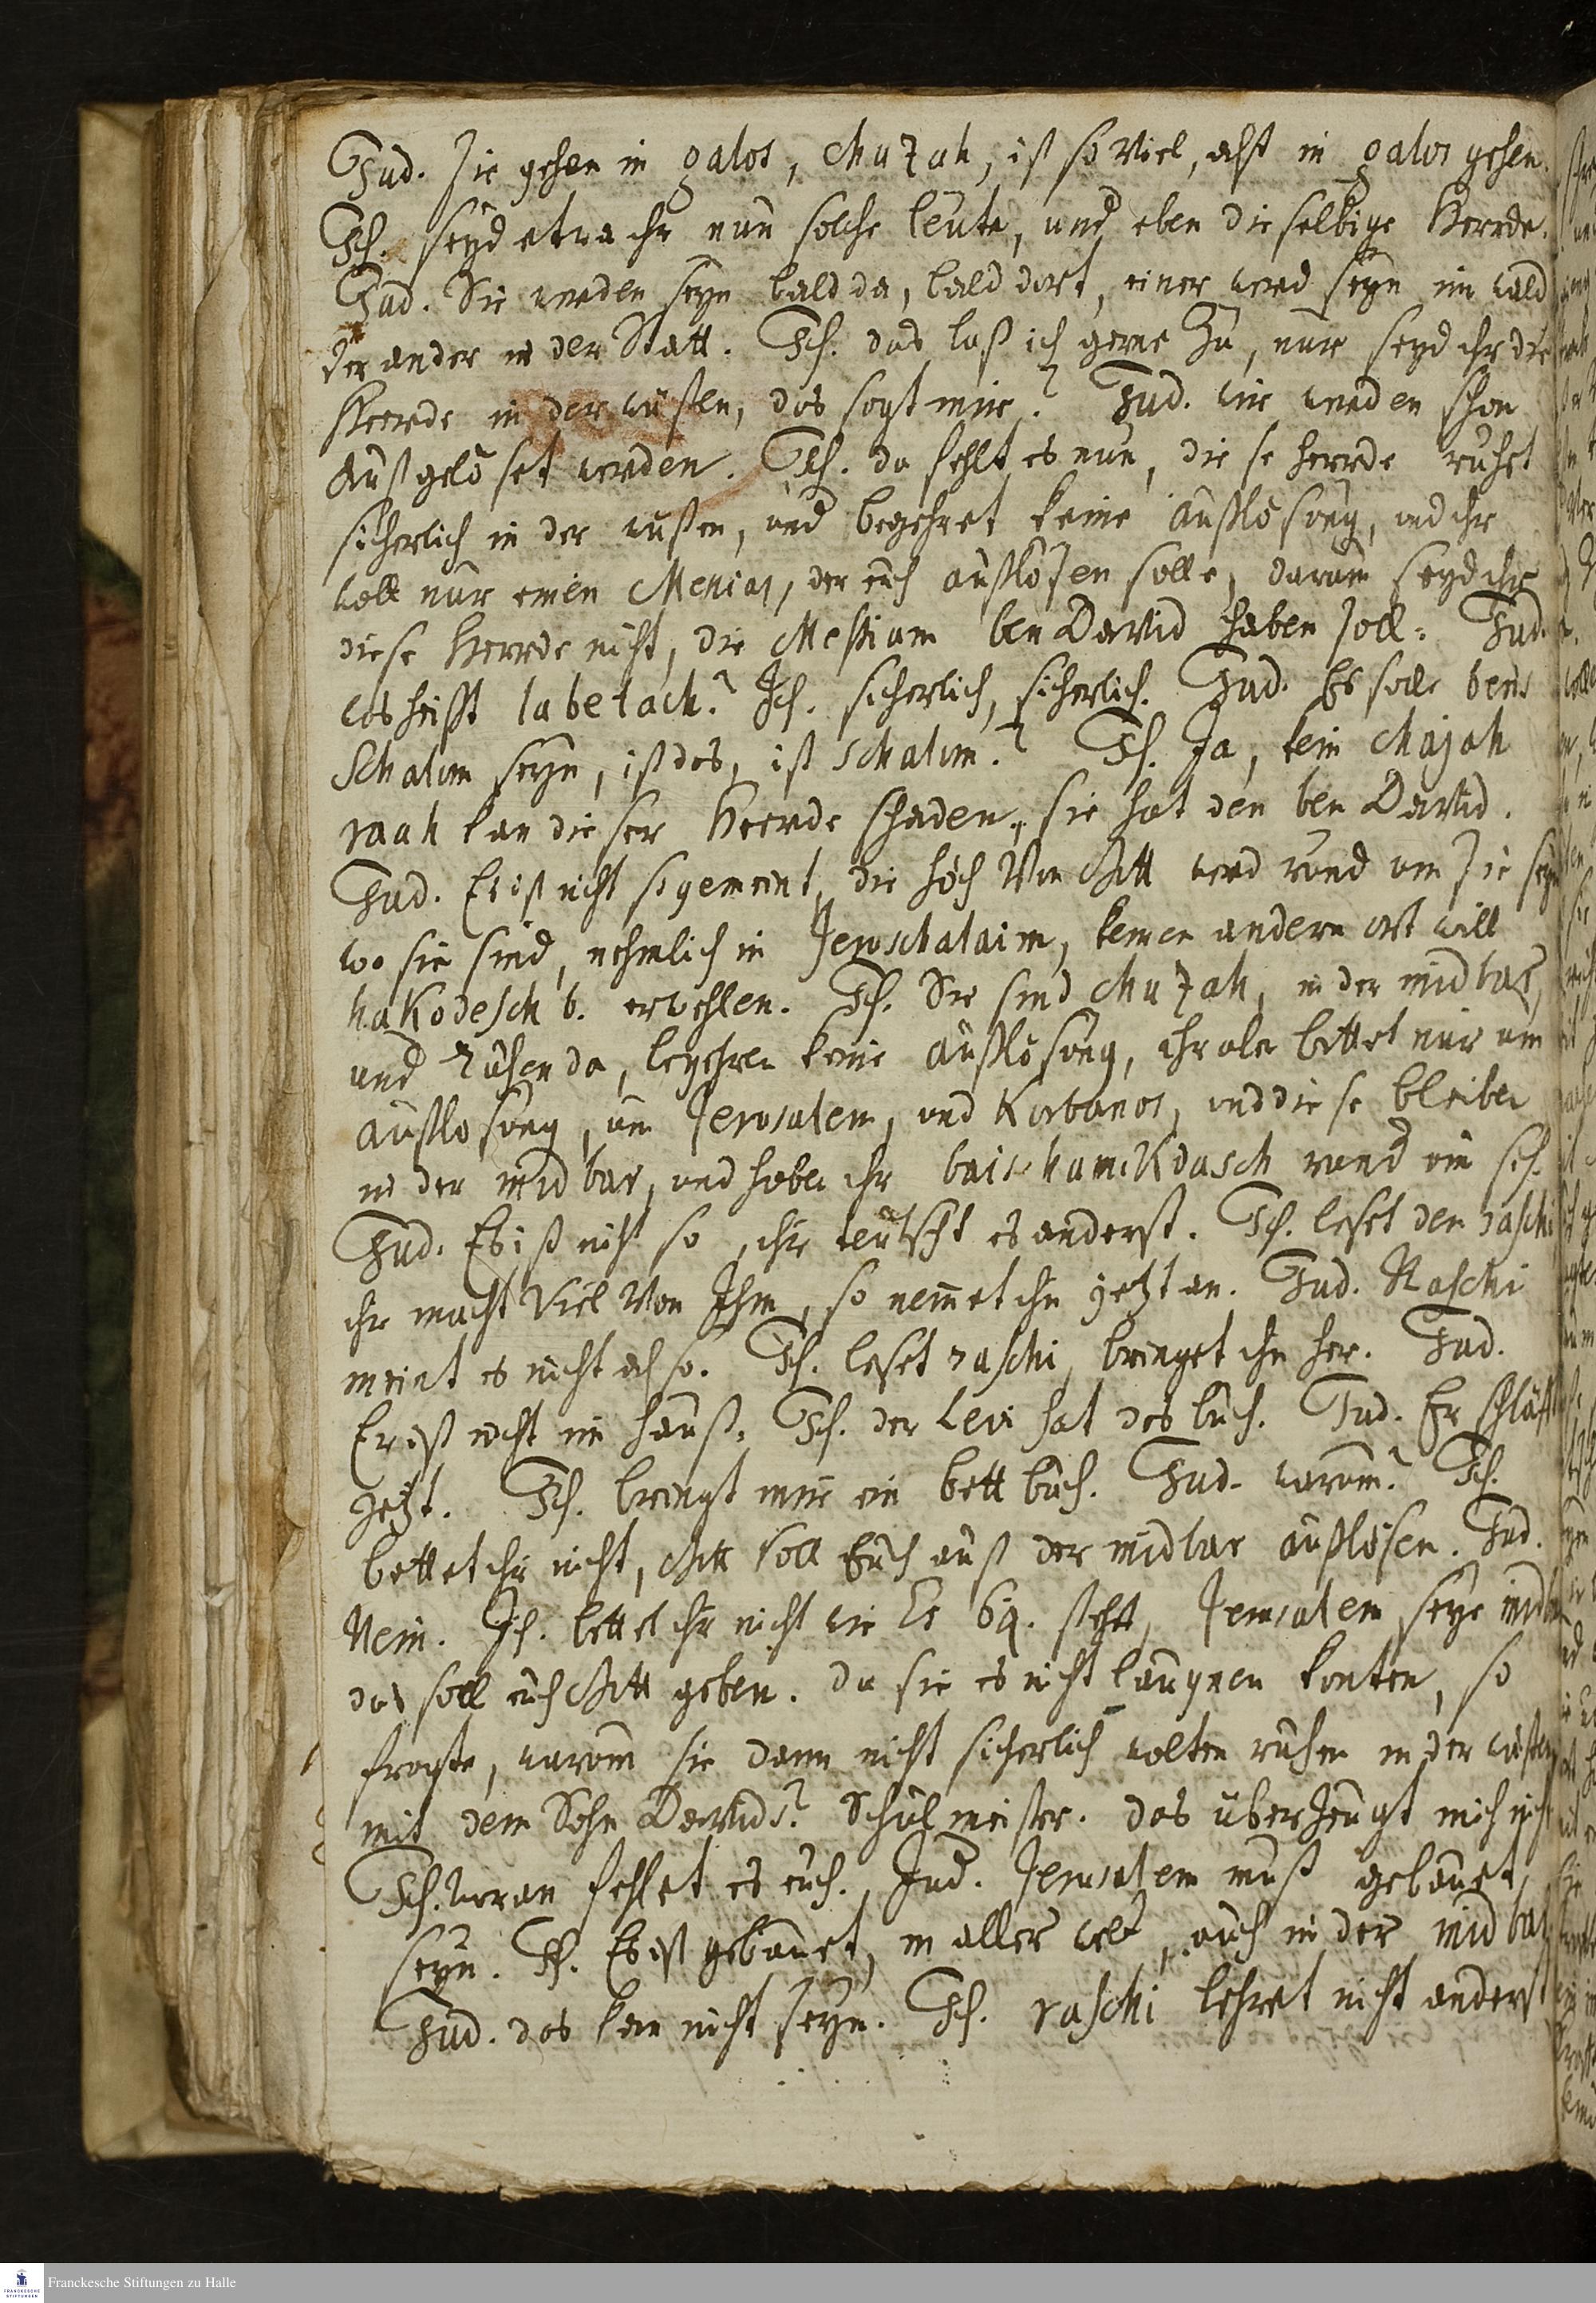 Jud. Sie gehen in galos, chuzah, ist so viel, alß in galos gehen.
Ich. seyd etwa ihr nun solche leute, und eben dieselbige Heerde.
Jud. Sie werden seyn bald da, bald dort, einer werd seyn im wald
der ander in der Statt. Ich. das laß ich gerne zu, nur seyd ihr die
Heerde in der wüsten, das sagt mir? Jud. wir werden schon
außgelöset werden. Ich. da fehlt es nun, diese heerde ruhet
sicherlich in der wüsten, und begehret keine außlösung, und ihr
wollt nur einen Menias, der euch außlösen solle, darum seyd ihr
diese Heerde nicht, die Messiam ben David haben soll. Jud.
was heißt labetach? Ich. sicherlich, sicherlich. Jud. Es solle beris
Schalom seyn, ist das, ist schalom? Ich. Ja, kein chajah
raah kan dieser Heerde schaden, sie hat den ben David.
Jud. Es ist nicht so gemeint, die höh von Gott werd rund um sie seyn
wo sie sind, nehmlich in Jeruschalaim, keinen andern ort will
hakodesch b. erwehlen. Ich. Sie sind chuzah, in der midbar,
und ruhen da, begehren keine außlösung, ihr aber bettet nur um
außlösung, um Jerusalem, und Korbanos, und diese bleiben
in der midbar, und haben ihr bais hamikdasch rund um sich.
Jud. Es ist nicht so, ihr teutscht es anderst. Ich. leset den raschi
ihr macht viel von Ihm, so nemmet ihn jetzt an. Jud. Raschi
meint es nicht also. Ich. leset raschi, bringet ihn her. Jud.
Er ist nicht im hauß. Ich. der Levi hat das buch. Jud. Er schläfft
jetzt. Ich. bringt mir ein bettbuch. Jud. warum? Ich.
bettet ihr nicht, Gott soll Euch auß der midbar außlösen. Jud.
Nein. Ich. bettet ihr nicht wie Es 64. steht, Jerusalem seye midbar
das soll euch Gott geben. da sie es nicht laugnen konten, so
fragte, warum sie dann nicht sicherlich wolten ruhen in der wüsten
mit dem Sohn Davids? Schulmeister. das überzeugt mich nicht
Ich. woran fehlet es euch. Jud. Jerusalem muß gebauet
seyn. Ich. Es ist gebauet, in aller welt, auch in der midbar
Jud. das kan nicht seyn. Ich. raschi lehret nicht anderst
Franckesche Stiftungen zu Halle